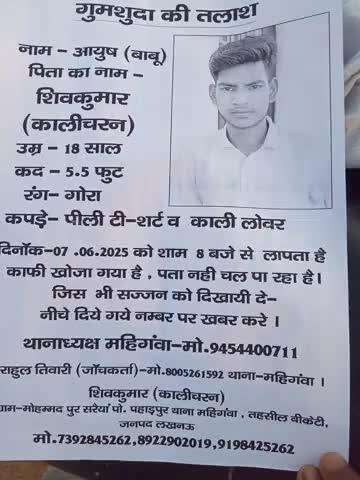 गुमशुदा की तलाश
नाम - आयुष (बाबू)
पिता का नाम -
शिवकुमार
(कालीचरन)
उम्र - 18 साल
कद - 5.5 फुट
रंग- गोरा
कपड़े- पीली टी-शर्ट व काली लोवर
दिनॉक-07 .06.2025 को शाम 8 बजे से लापता है
काफी खोजा गया है , पता नही चल पा रहा है।
जिस भी सज्जन को दिखायी दे-
नीचे दिये गये नम्बर पर खबर करे ।
थानाध्यक्ष महिगंवा-मो.9454400711
राहुल तिवारी (जॉचकर्ता)-मो.8005261592 थाना-महिगंवा ।
शिवकुमार (कालीचरन)
ग्राम-मोहम्मद पुर सरेयां पो. पहाड़पुर थाना महिगंवा , तहसील बीकेटी,
जनपद लखनऊ
मो.7392845262,8922902019,9198425262